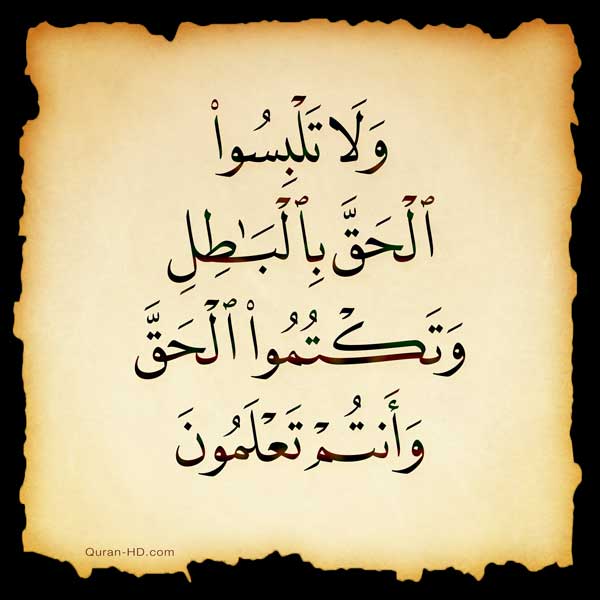 وَلَا تَلْبِسُوا۟
ٱلْحَقَّ بِٱلْبَـٰطِلِ
وَتَكْتُمُوا۟ ٱلْحَقَّ
وَأَنتُمْ تَعْلَمُونَ
Quran-HD.com